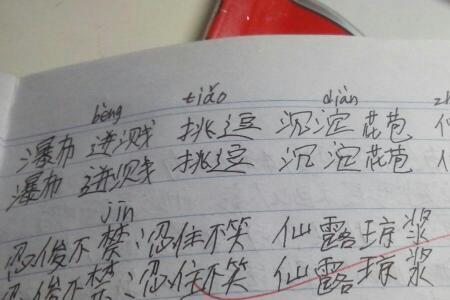 bèng tiǎo diàn
瀑布 迸溅 挑逗 沉淀 花苞
瀑布 迸溅 挑逗 沉淀 花苞
jīn
忍俊不禁:忍住不笑 仙露琼浆
忍俊不禁:忍住不笑 仙露琼浆